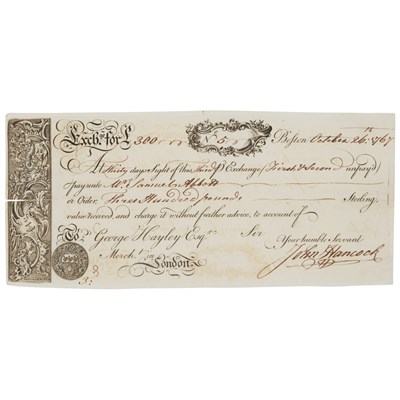 Exch.ᵃ for £ 300 " " " N 5 Boston October 26.ᵗʰ 1767
At Thirty days Sight of this Third of Exchange (First & Second unpaid)
pay unto Mr. Samuel Abbott
or Order, Three Hundred pounds Sterling,
value received, and charge it without further advice, to account of
To George Hayley Esqʳ Sir Your humble Servant
Merch.ᵗ in John Hancock
London